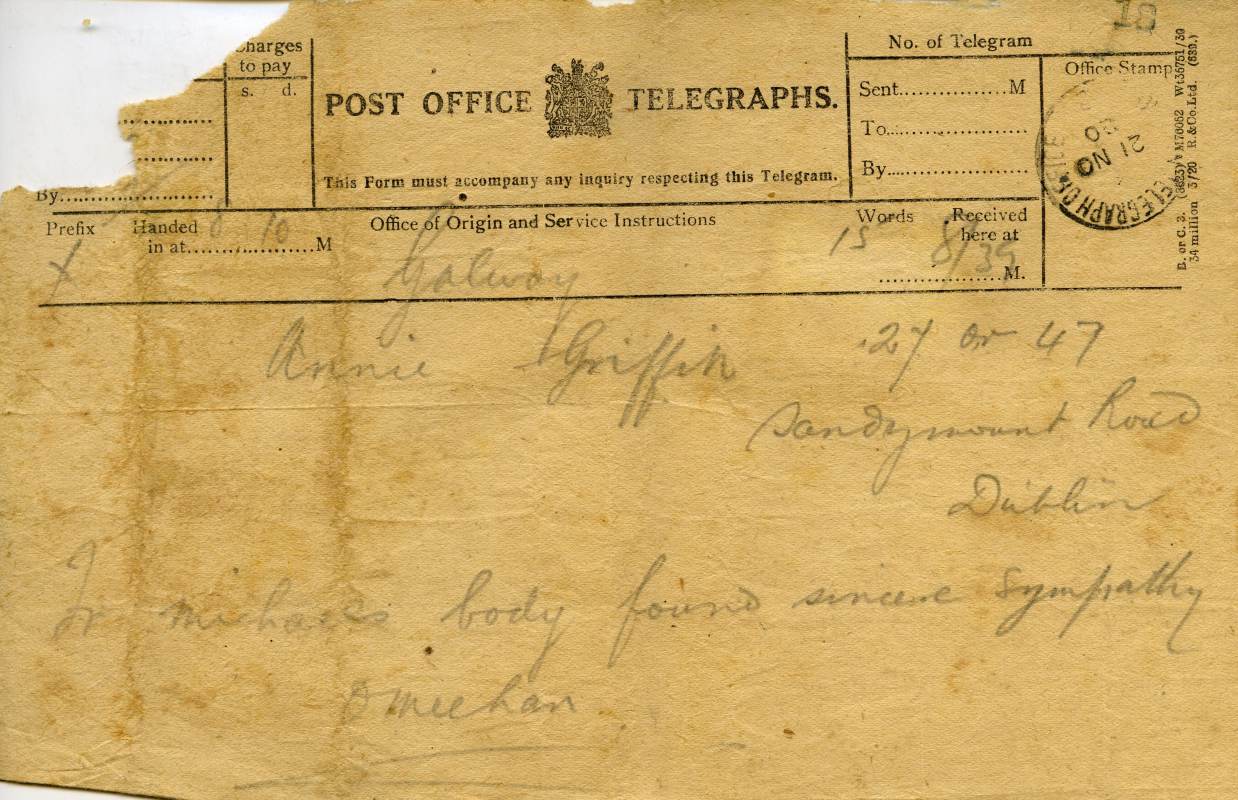 18
Charges
to pay
s. d.
POST OFFICE TELEGRAPHS.
This Form must accompany any inquiry respecting this Telegram.
No. of Telegram
Sent...............M
To....................
By....................
Office Stamp
21 NO
20
TELEGRAPH OFFICE
B. or C. 3. (3623) M76052 Wt36751/30
34 million 3/20 R.&Co.Ltd. (839.)
By....................
Prefix Handed
in at..................M
Office of Origin and Service Instructions
Words Received
here at
..................M.
X 10 Galway 15 8/39
Annie Griffin 27 or 47
Sandymount Road
Dublin
Fr Michaels body found sincere sympathy
O Meehan